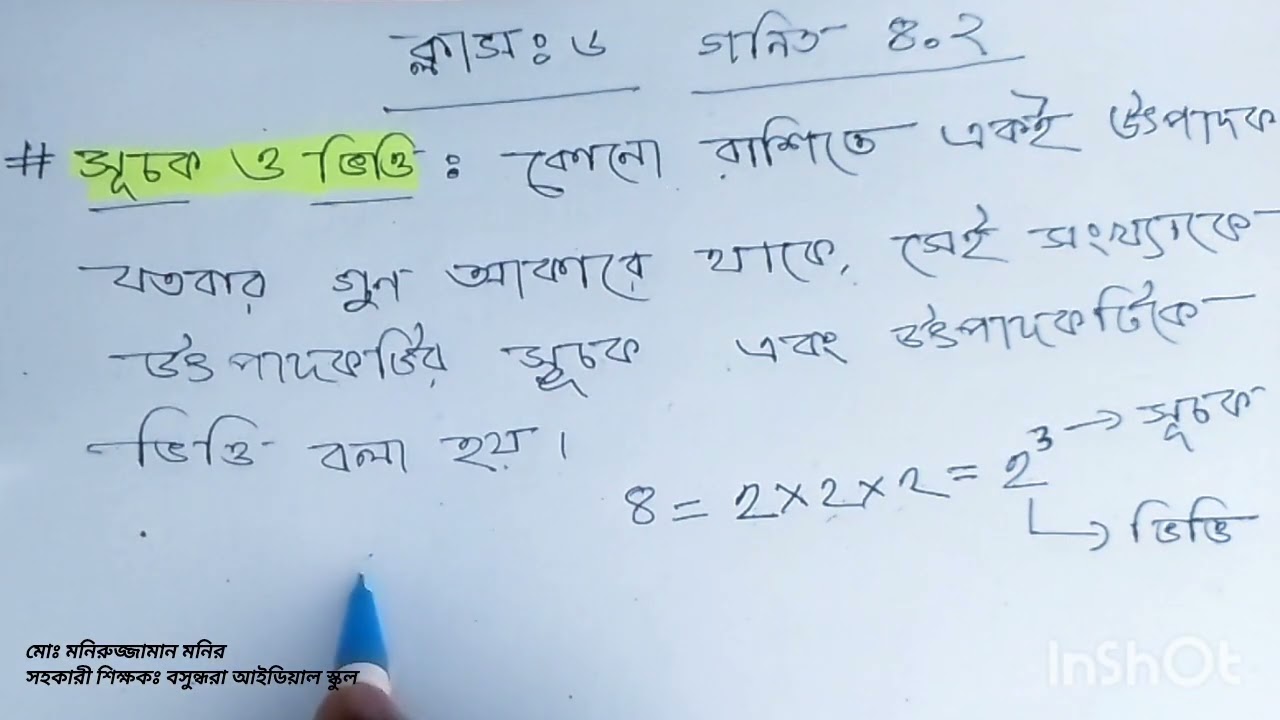 ক্লাসঃ ৬ গনিত ৪.২
# সূচক ও ভিত্তি : কোনো রাশিতে একই উৎপাদক
যতবার গুন আকারে থাকে, সেই সংখ্যাকে
উৎপাদকটির সূচক এবং উৎপাদকটিকে
ভিত্তি বলা হয়।
8 = 2×2×2 = 2³ → সূচক
↳ ভিত্তি
মোঃ মনিরুজ্জামান মনির
সহকারী শিক্ষকঃ বসুন্ধরা আইডিয়াল স্কুল
InShOt